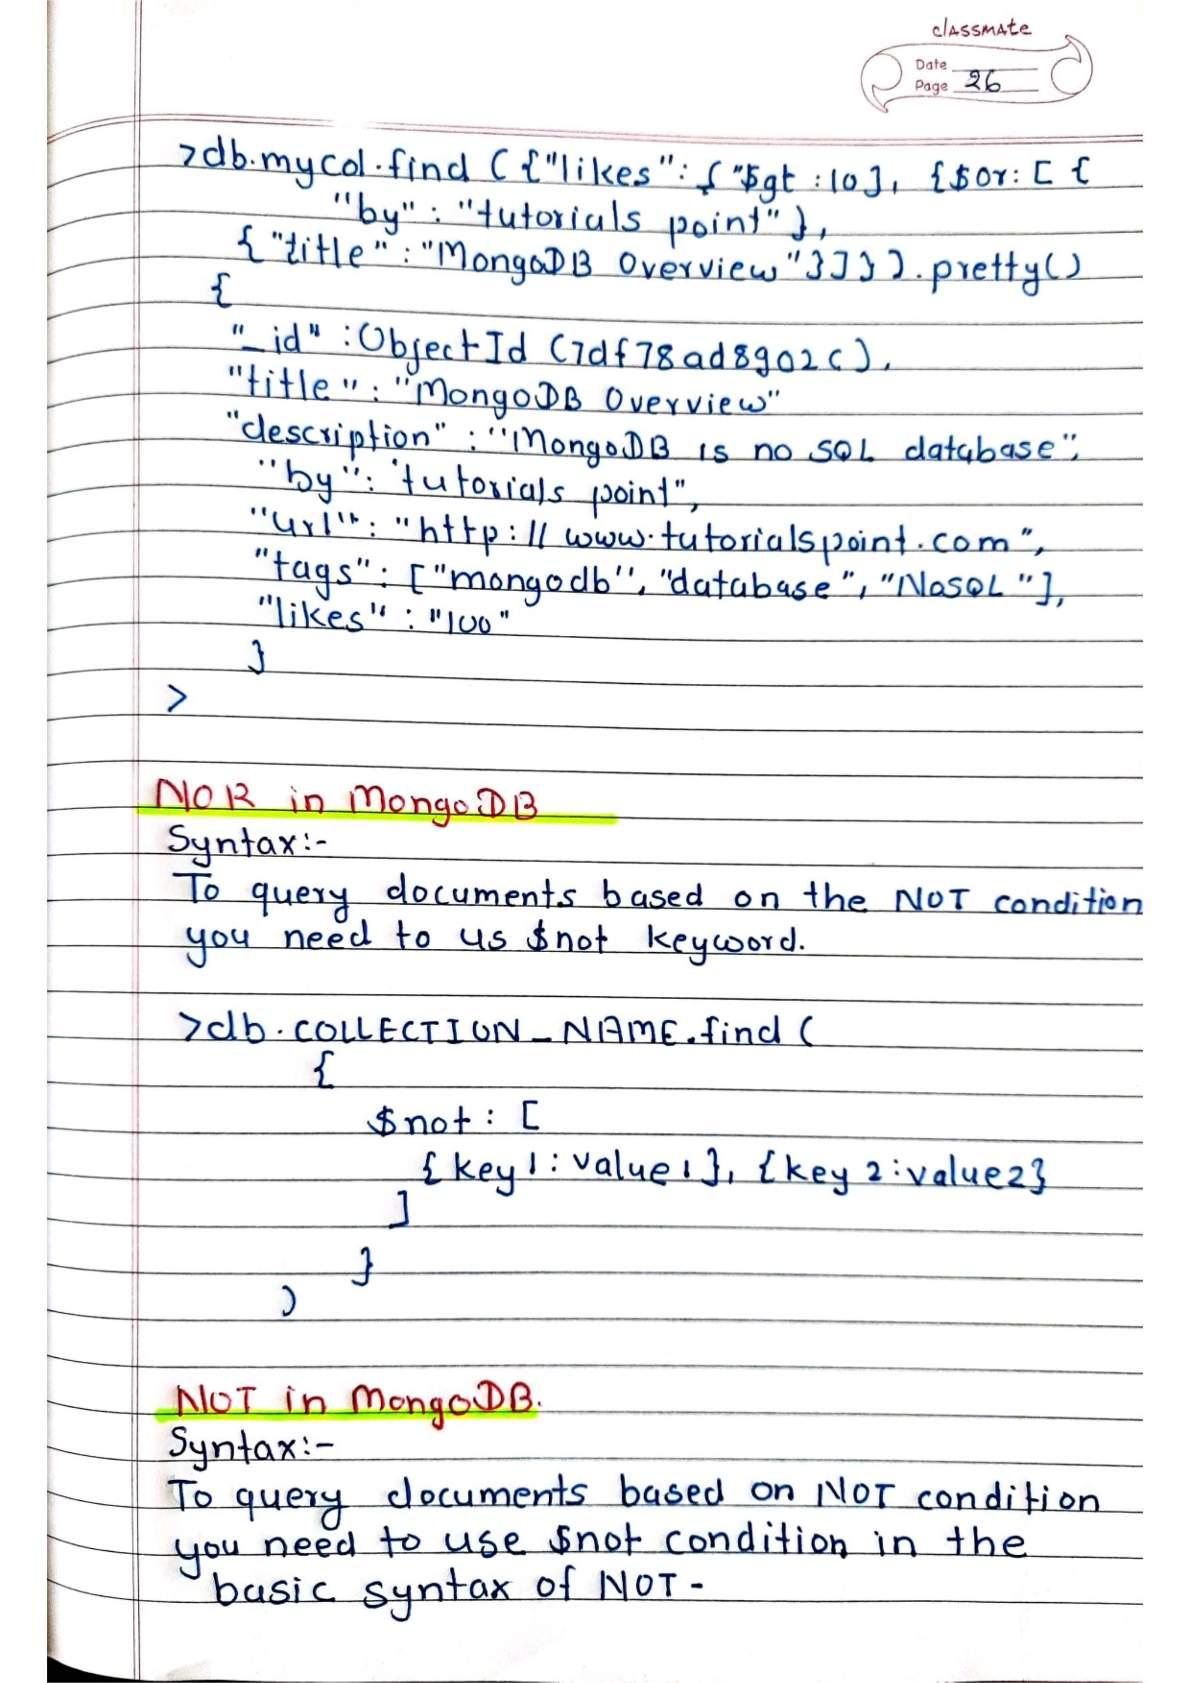 classmate
Date
Page 26
>db.mycol.find ({"likes": { "$gt :10}, {$or: [ {
"by" : "tutorials point" },
{ "title" : "MongoDB Overview"}]} ).pretty()
{
"_id" : ObjectId (7df78ad8902c),
"title" : "MongoDB Overview"
"description" : "MongoDB is no SQL database",
"by" : 'tutorials point",
"url" : "http://www.tutorialspoint.com",
"tags" : ["mongodb", "database", "NoSQL"],
"likes" : "100"
}
>
NOR in MongoDB
Syntax:-
To query documents based on the NOT condition
you need to us $not keyword.
>db.COLLECTION_NAME.find (
{
$not : [
{key1: value1}, {key 2:value2}
]
}
)
NOT in MongoDB.
Syntax:-
To query documents based on NOT condition
you need to use $not condition in the
basic syntax of NOT -